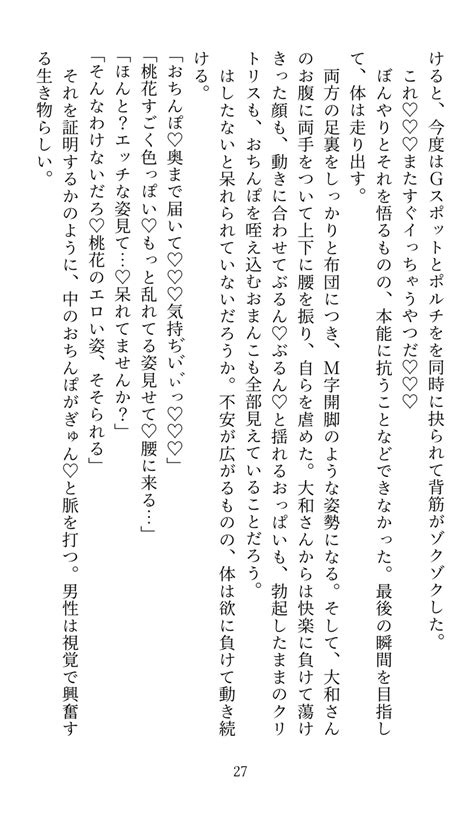 けると、今度はGスポットとポルチをを同時に抉られて背筋がゾクゾクした。
これ♡♡♡またすぐイっちゃうやつだ♡♡♡
ぼんやりとそれを悟るものの、本能に抗うことなどできなかった。最後の瞬間を目指し
て、体は走り出す。
両方の足裏をしっかりと布団につき、M字開脚のような姿勢になる。そして、大和さん
のお腹に両手をついて上下に腰を振り、自らを虐めた。大和さんからは快楽に負けて蕩け
きった顔も、動きに合わせてぶるん♡ぶるん♡と揺れるおっぱいも、勃起したままのクリ
トリスも、おちんぽを咥え込むおまんこも全部見えていることだろう。
はしたないと呆れられていないだろうか。不安が広がるものの、体は欲に負けて動き続
ける。
「おちんぽ♡奥まで届いて♡♡♡気持ぢいぃっ♡♡♡」
「桃花すごく色っぽい♡もっと乱れてる姿見せて♡腰に来る…」
「ほんと？エッチな姿見て…♡呆れてませんか？」
「そんなわけないだろ♡桃花のエロい姿、そそられる」
それを証明するかのように、中のおちんぽがぎゅん♡と脈を打つ。男性は視覚で興奮す
る生き物らしい。
27